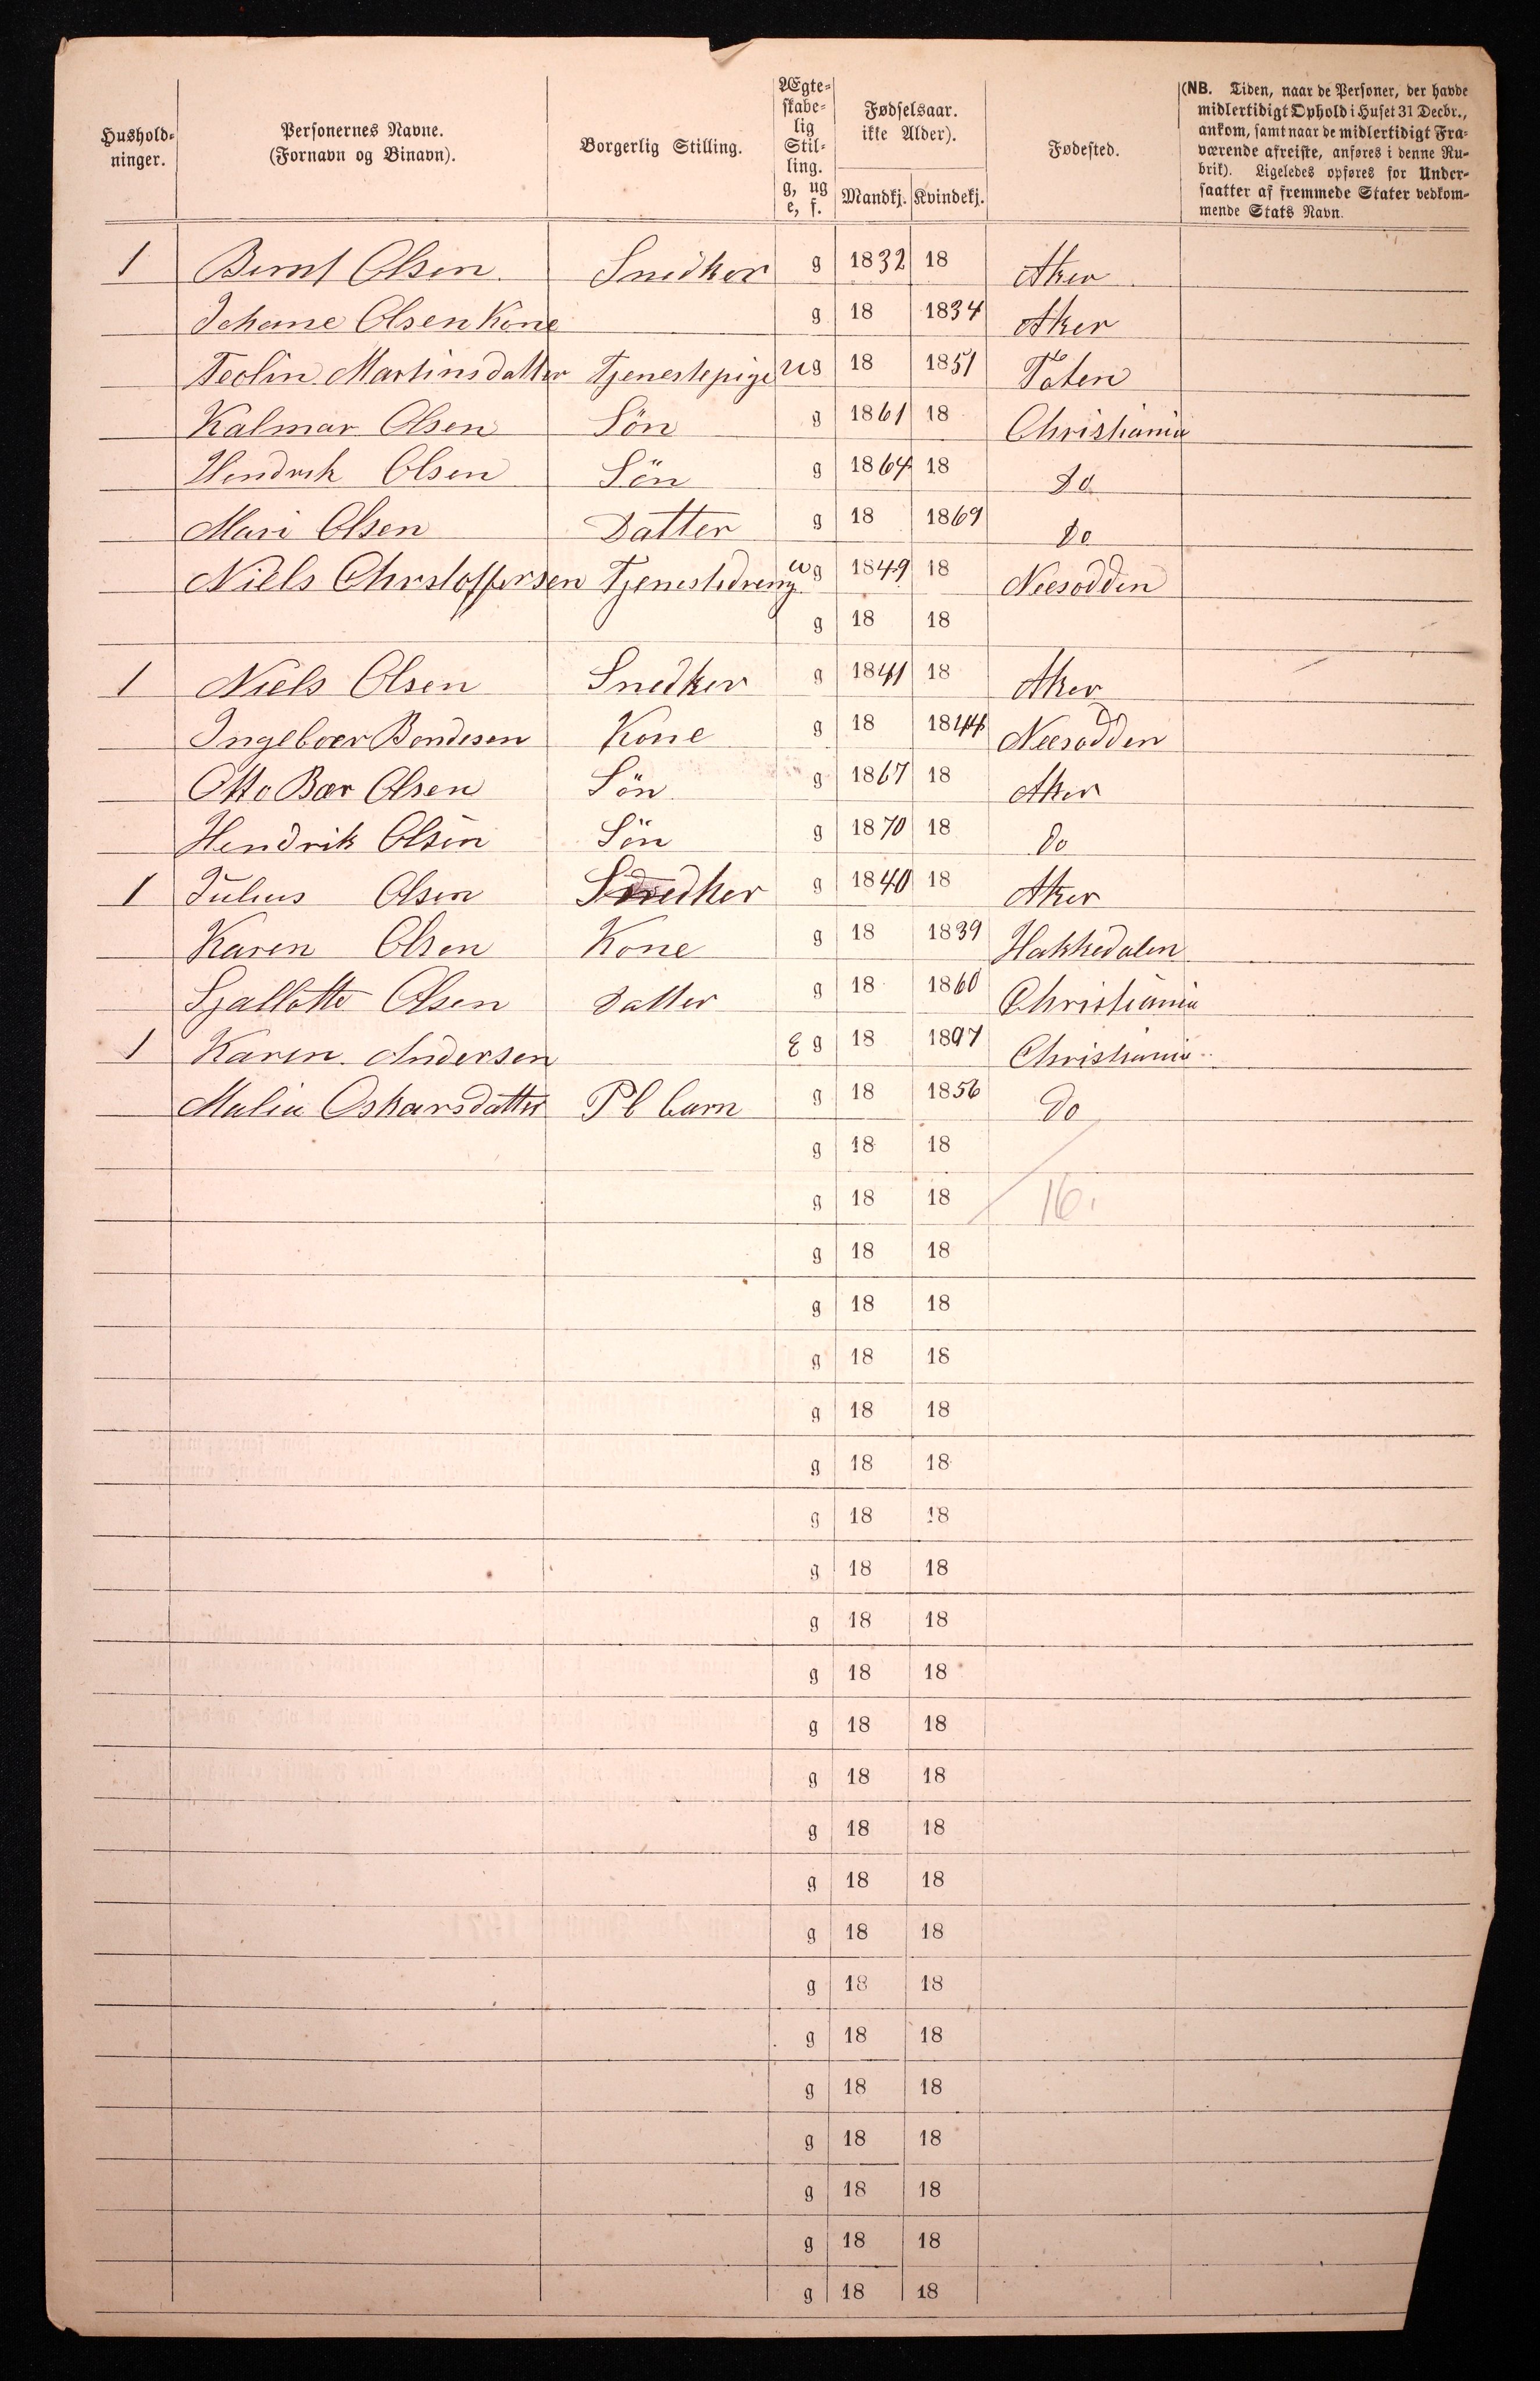 Hushold-
ninger.
Personernes Navne.
(Fornavn og Binavn).
Borgerlig Stilling.
Ægte-
skabe-
lig
Stil-
ling.
g, ug
e, f.
Fødselsaar.
ikke Alder).
Mandkj. Kvindekj.
Fødested.
(NB. Tiden, naar de Personer, der havde
midlertidigt Ophold i Huset 31 Decbr.,
ankom, samt naar de midlertidigt Fra-
værende afreiste, anføres i denne Ru-
brik). Ligeledes opføres for Under-
saatter af fremmede Stater vedkom-
mende Stats Navn.
1 Bernt Olsen Snedker g 1832 18 Aker
Johane Olsen Kone g 18 1834 Aker
Teolin Martinsdatter Tjenestepige ug 18 1851 Toten
Kalmar Olsen Sön g 1861 18 Christiania
Hendrik Olsen Sön g 1864 18 Do
Mari Olsen Datter g 18 1869 Do
Niels Chrstoffersen Tjenestedreng ug 1849 18 Neesodden
g 18 18
1 Niels Olsen Snedker g 1841 18 Aker
Ingeboer Bondesen Kone g 18 1844 Neesodden
Otto Bar Olsen Sön g 1867 18 Aker
Hendrik Olsen Sön g 1870 18 Do
1 Julius Olsen Snedker g 1840 18 Aker
Karen Olsen Kone g 18 1839 Hakkedalen
Sjallotte Olsen Datter g 18 1860 Christiania
1 Karen Andersen E g 18 1897 Christiania
Malia Oskarsdatter Pl barn g 18 1856 Do
g 18 18
g 18 18 16.
g 18 18
g 18 18
g 18 18
g 18 18
g 18 18
g 18 18
g 18 18
g 18 18
g 18 18
g 18 18
g 18 18
g 18 18
g 18 18
g 18 18
g 18 18
g 18 18
g 18 18
g 18 18
g 18 18
g 18 18
g 18 18